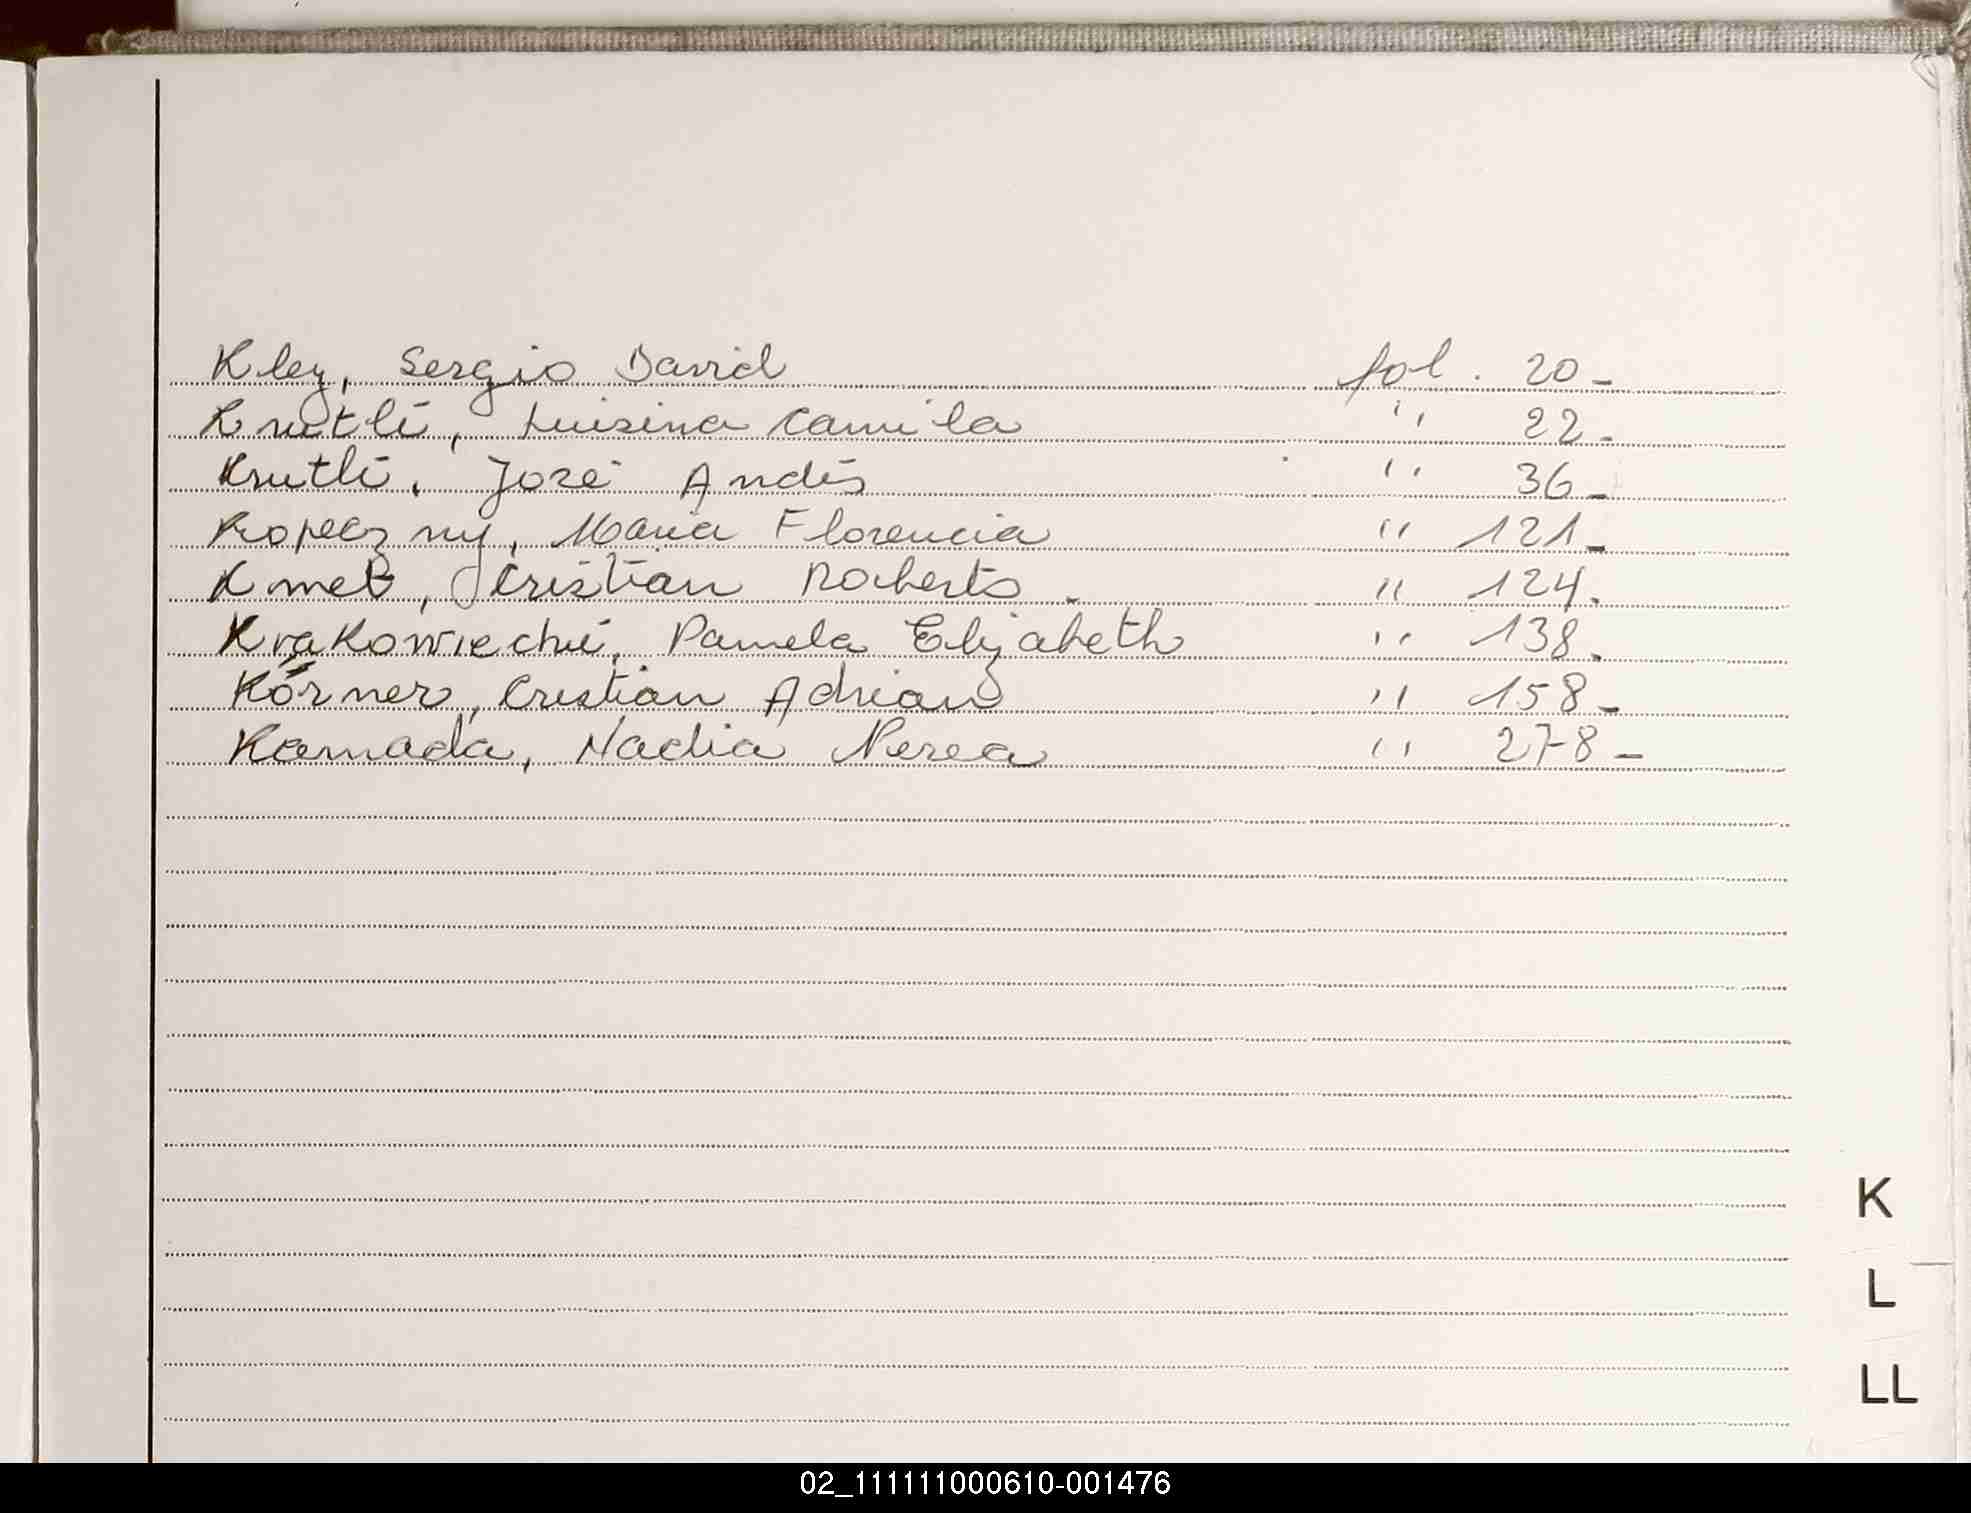 Kley, Sergio David fol. 20-
Knutli, Luisina Camila " 22-
Knutli, José Andés " 36-
Kopeczny, Maria Florencia " 121-
Kmet, Cristian Roberto. " 124.
Krakowiechi, Pamela Elizabeth " 138.
Körner, Cristian Adrian " 158-
Kamada, Nadia Nerea " 278-
K
L
LL
02_111111000610-001476